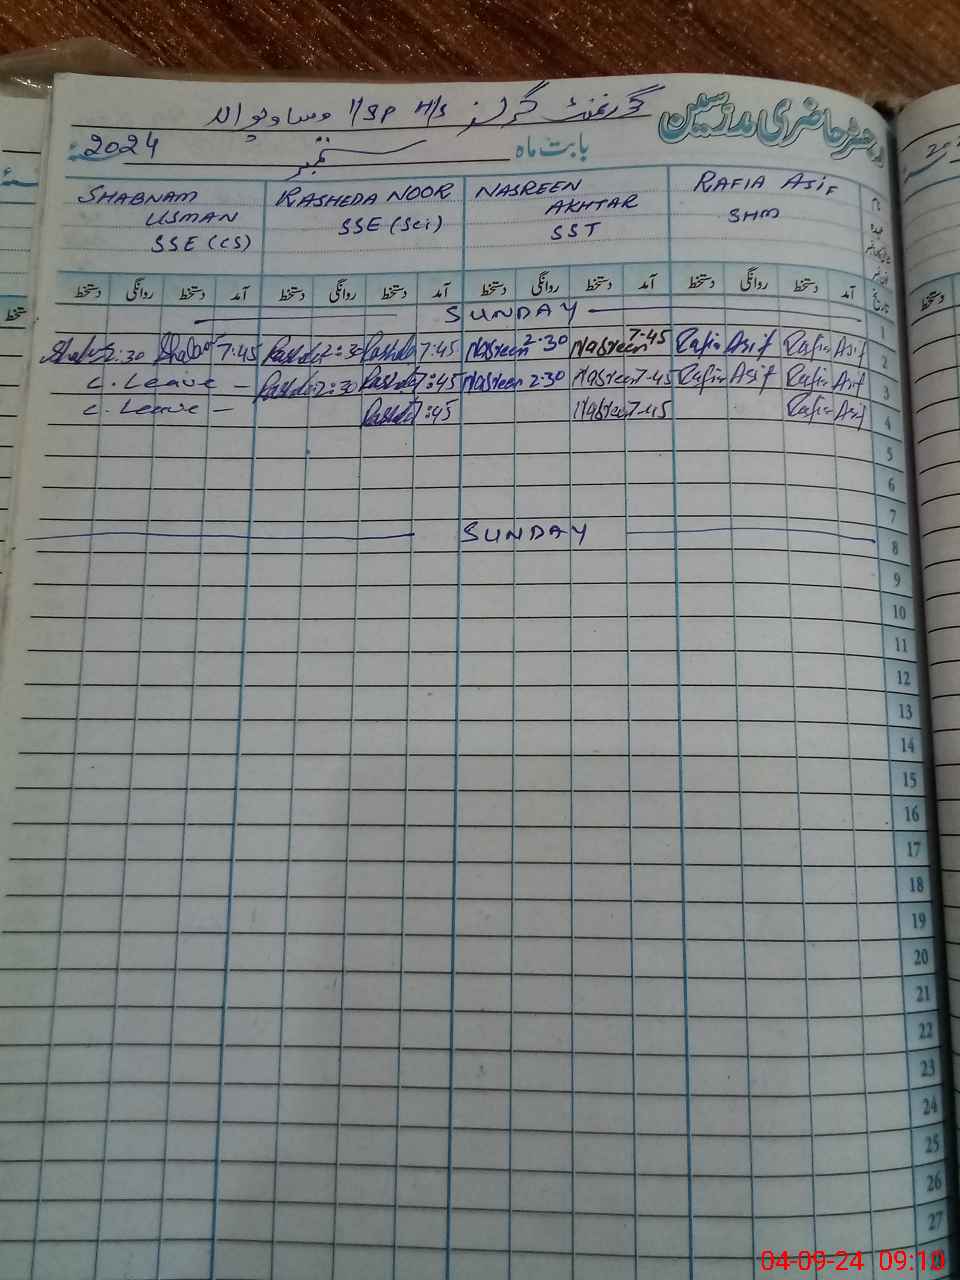 رجسٹر حاضری مدرسین گورنمنٹ گرلز H/S
بابت ماہ ستمبر 2024
RAFIA ASIF
SHM
NASREEN
AKHTAR
SST
RASHEDA NOOR
SSE (Sci)
SHABNAM
USMAN
SSE (CS)
تاریخ آمد دستخط روانگی دستخط آمد دستخط روانگی دستخط آمد دستخط روانگی دستخط آمد دستخط روانگی دستخط
1 SUNDAY
2 Rafia Asif Rafia Asif 7-45 Nasreen 2-30 Nasreen 7:45 Rashda 2:30 Rashda 7:45 2:30
3 Rafia Asif Rafia Asif 7-45 Nasreen 2-30 Nasreen 7:45 Rashda 2:30 Rashda C. Leave -
4 Rafia Asif 7-45 Nasreen 7:45 Rashda C. Leave -
5
6
7
8 SUNDAY
9
10
11
12
13
14
15
16
17
18
19
20
21
22
23
24
25
26
27
04-09-24 09:10